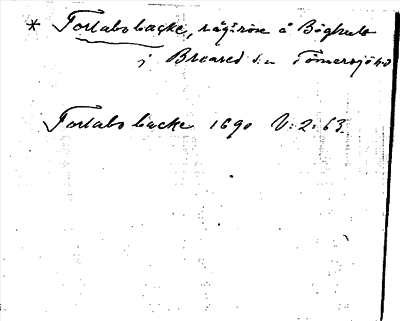 * Torlabsbacke, rågörse å Böghult
i Breared s:n Tönnersjö hd
Torlabs backe 1690 V: 2: 63.